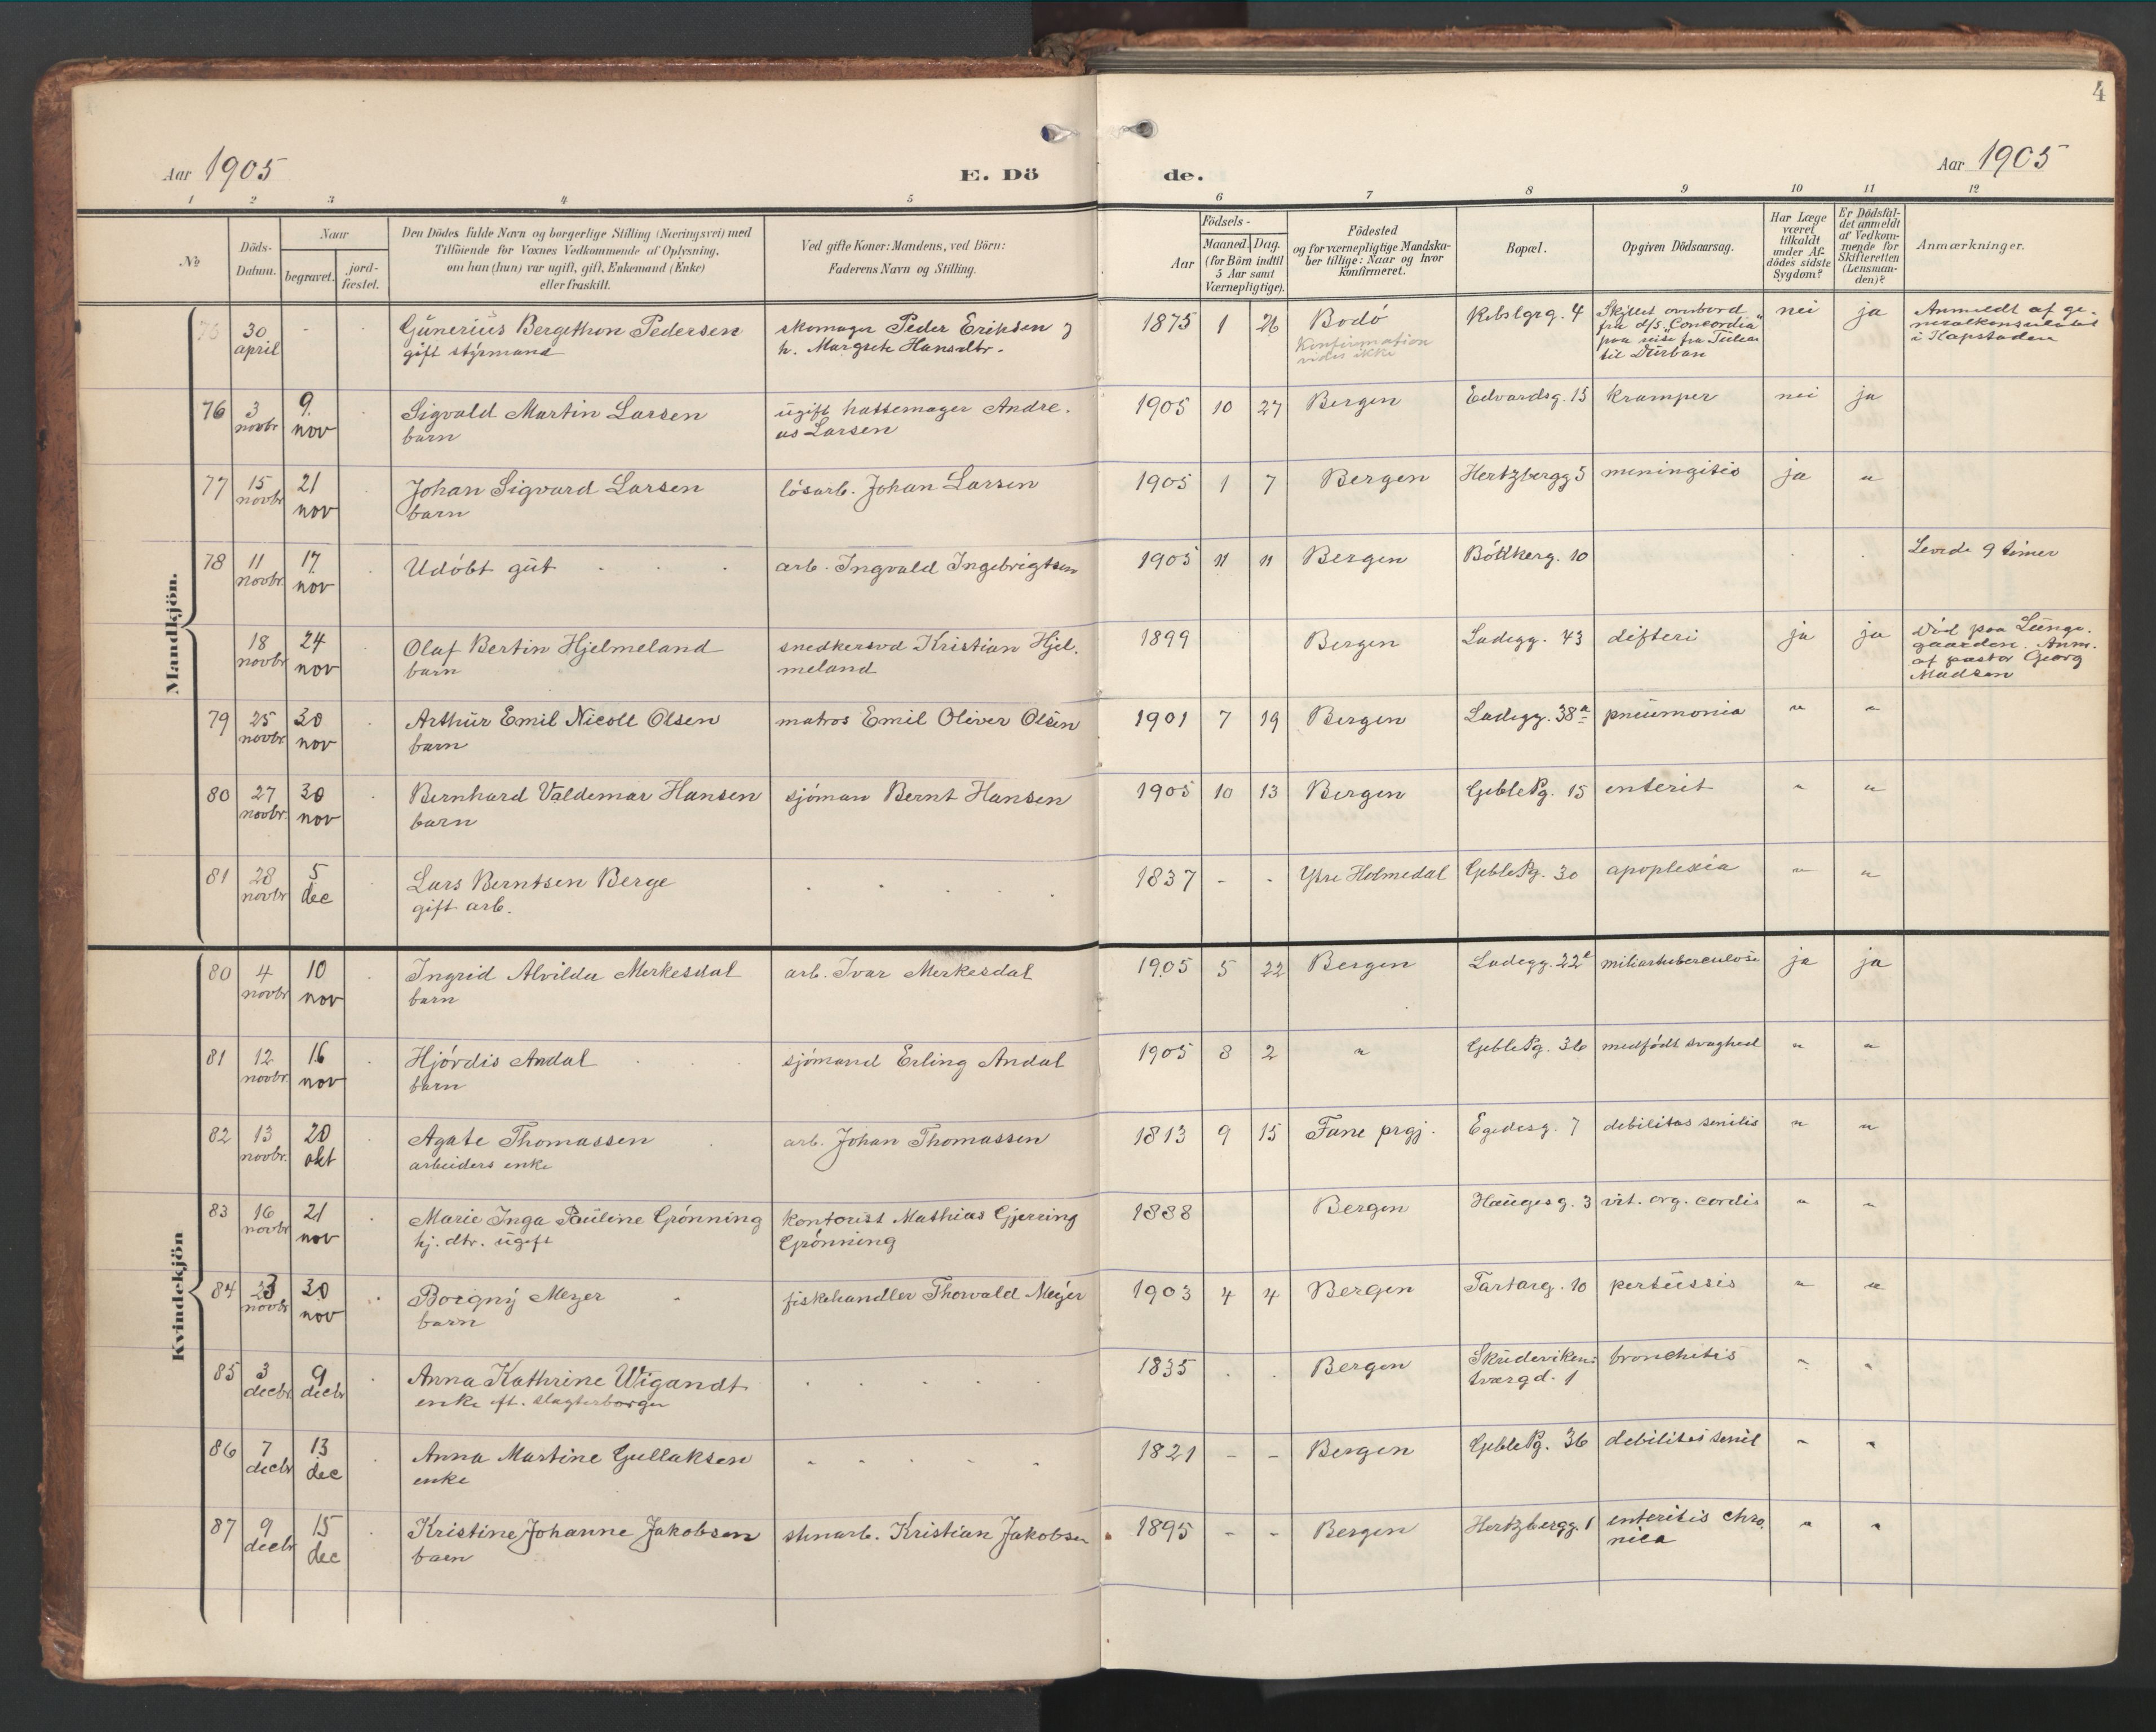 4
Aar 1905
E. Dö
de.
Aar 1905
1 2 3 4 5 6 7 8 9 10 11 12
№
Döds-
Datum.
Naar
begravet.
jord-
fæstet.
Den Dödes fulde Navn og borgerlige Stilling (Næringsvei) med
Tilföiende for Voxnes Vedkommende af Oplysning,
om han (hun) var ugift, gift, Enkemand (Enke)
eller fraskilt.
Ved gifte Koner: Mandens, ved Börn:
Faderens Navn og Stilling.
Födsels-
Aar
Maaned. Dag.
(for Börn indtil
5 Aar samt
Værnepligtige).
Födested
og for værnepligtige Mandska-
ber tillige: Naar og hvor
konfirmeret.
Bopæl.
Opgiven Dödsaarsag.
Har Læge
været
tilkaldt
under Af-
dödes sidste
Sygdom?
Er Dödsfal-
det anmeldt
af Vedkom-
mende for
Skifteretten
(Lensman-
den)?
Anmærkninger.
Mandkjön.
75 30 april
Gunerius Bergithon Pedersen
gift styrmand
skomager Peder Eriksen &
h. Margrete Hansdtr.
1875 1 26 Bodö
Konfirmation
vides ikke
4
Skyllet overbord
fra d/s "Concordia"
paa reise fra Tulear
til Durban
nei ja
Anmeldt af ge-
neralkonsulatet
i Kapstaden
76 3 novbr 9. nov
Sigvald Martin Larsen
barn
ugift hattemager Andre-
as Larsen
1905 10 27 Bergen Edvardsg. 15 kramper nei ja
77 15 novbr 21 nov
Johan Sigvard Larsen
barn
lösarb. Johan Larsen
1905 1 7 Bergen Hertzbergg 5 meningitis ja "
78 11 novbr. 17. nov
Udöbt gut
arb. Ingvald Ingebrigtsen
1905 11 11 Bergen Bökkerg. 10
Levede 9 timer
18 novbr 24 nov
Olaf Bertin Hjelmeland
barn
snedkersvd Kristian Hjel-
meland
1899 Bergen Ladegg. 43 difteri ja ja
Död paa Lunge-
gaarden. Anm.
af pastor Georg
Madsen
79 25 novbr. 30 nov
Arthur Emil Nicoll Olsen
barn
matros Emil Oliver Olsen
1901 7 19 Bergen Ladegg. 38a pneumonia " "
80 27 novbr. 30 nov
Bernhard Valdemar Hansen
barn
sjöman Bernt Hansen
1905 10 13 Bergen Geble Pg. 15 enterit " "
81 28 novbr 5 dec
Lars Berntsen Berge
gift arb.
1837 - - Ytre Holmedal Geble Pg. 30 apoplexia " "
Kvindekjön
80 4 novbr 10 nov
Ingrid Alvilda Merkesdal
barn
arb. Ivar Merkesdal
1905 5 22 Bergen Ladegg. 22a miliartuberculose ja ja
81 12 novbr. 16 nov
Hjördis Andal
barn
sjömand Erling Andal
1905 8 2 " Geble Pg. 36 medfödt svaghed " "
82 13 novbr. 20 okt
Agate Thomassen
arbeiders enke
arb. Johan Thomassen
1813 9 15 Fane prgj. Egedesg. 7 debilitas senilis " "
83 16 novbr 21 nov
Marie Inga Pauline Grönning
hj. dtr. ugift
kontorist Mathias Gjerring
Grönning
1888 Bergen Haugesg. 3 vit. org. cordis " "
84 23 novbr 30 nov
Borgny Meyer
barn
fiskehandler Thorvald Meyer
1903 4 4 Bergen Tartarg. 10 pertussis " "
85 3 decbr 9 decbr
Anna Kathrine Wigandt
enke eft. slagterborger
1835 Bergen Skudeviken:
tværgd. 1
bronchitis " "
86 7 decbr 13 dec
Anna Martine Gullaksen
enke
1821 - - Bergen Geble Pg. 36 debilitas senil " "
87 9 decbr 15 dec
Kristine Johanne Jakobsen
barn
stenarb. Kristian Jakobsen
1895 - - Bergen Hertzbergg. 1 enteritis chro-
nica
" "